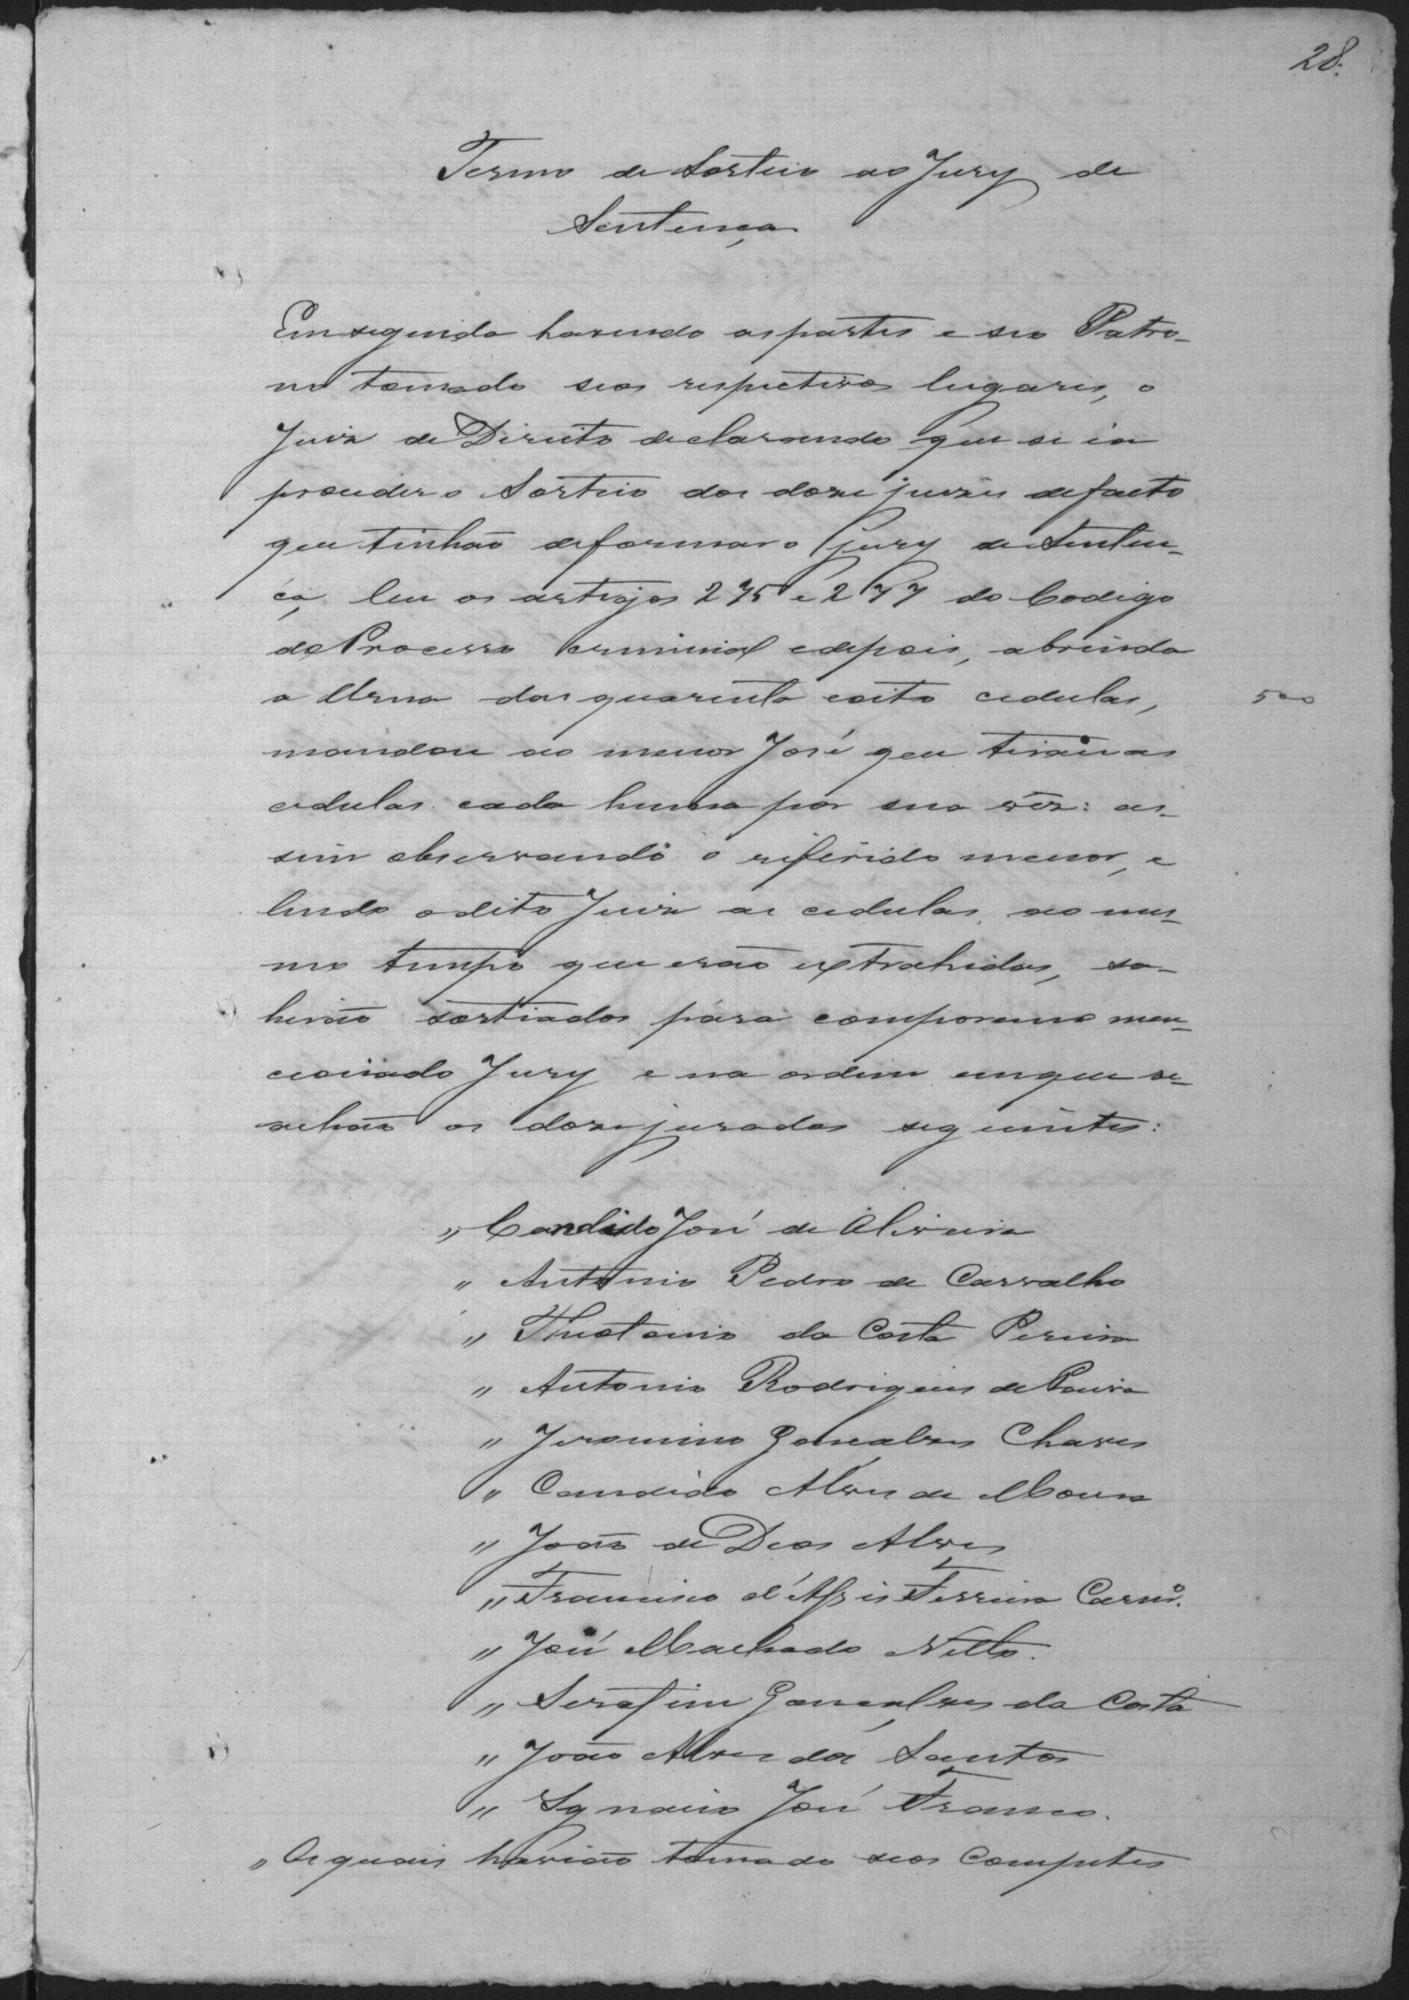 28.
Termo de Sorteio ao Jury de
Sentença
Em seguida havendo as partes e seo Patro-
no tomado seos respectivos lugares, o
Juiz de Direito declarando que se ia
proceder o Sorteio dos doze juizes de facto
que tinhão de formar o jury de Senten-
ça, leu os artigos 275 e 277 do Codigo
do Processo criminal e depois, abrindo
a Urna das quarenta e oito cedulas,
500
mandou ao menor José que tirasse as
cedulas cada huma por sua vêz: as-
sim observando o referido menor, e
lendo o dito Juiz as cedulas, ao mes-
mo tempo que erão extrahidas, sa-
hirão sorteados para comporem o men-
cionado Jury e na ordem em que se
achão os doze jurados seguintes:
" Candido José de Oliveira
" Antonio Pedro de Carvalho
" Theotonio da Costa Pereira
" Antonio Rodrigues de Paiva
" Jeronimo Gonçalves Chaves
" Candido Alves de Moura
" João de Deos Alves
" Francisco d'Assis Ferreira Carnro.
" José Machado Netto.
" Serafim Gonçalves da Costa
" João Alves dos Santos
" Ignacio José Franco.
" Os quais havião tomado seos Competes